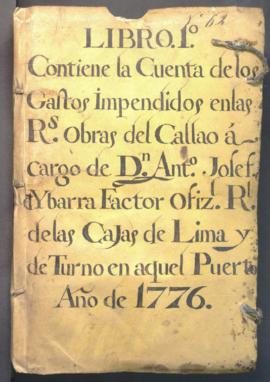 62
LIBRO. 1º.
Contiene la Cuenta de los
Gastos Impendidos enlas
Rs. Obras del Callao á
cargo de Dn. Antº. Josef.
Ybarra Factor Ofizl. Rl.
de las Cajas de Lima y
de Turno en aquel Puerto
Año de 1776.